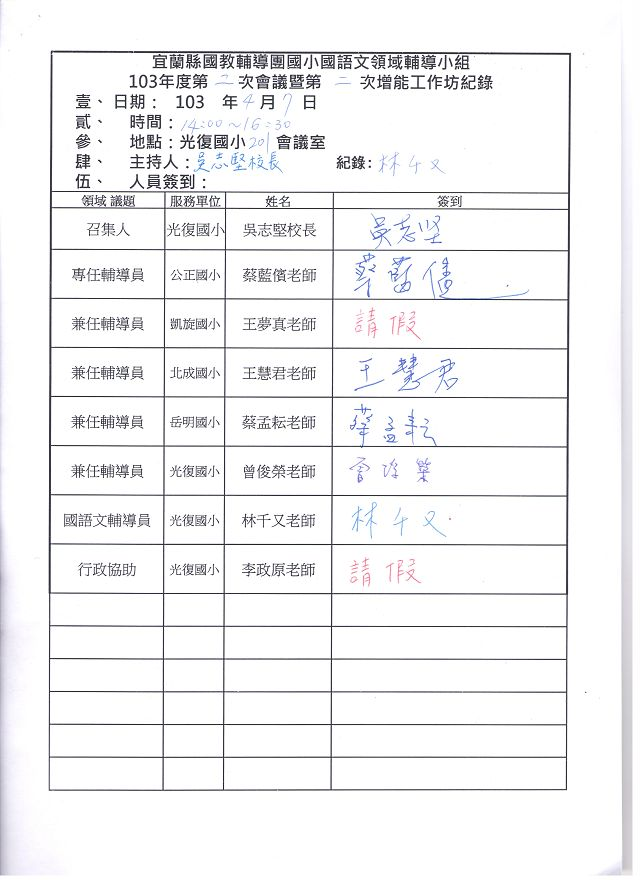 宜蘭縣國教輔導團國小國語文領域輔導小組
103年度第 二 次會議暨第 二 次增能工作坊紀錄
壹、日期： 103 年 4 月 7 日
貳、 時間：14:00~16:30
參、 地點：光復國小 201 會議室
肆、 主持人：吳志堅校長 紀錄: 林千又
伍、 人員簽到：
領域 議題 服務單位 姓名 簽到
召集人 光復國小 吳志堅校長 吳志堅
專任輔導員 公正國小 蔡藍儐老師 蔡藍儐
兼任輔導員 凱旋國小 王夢真老師 請假
兼任輔導員 北成國小 王慧君老師 王慧君
兼任輔導員 岳明國小 蔡孟耘老師 蔡孟耘
兼任輔導員 光復國小 曾俊榮老師 曾俊榮
國語文輔導員 光復國小 林千又老師 林千又
行政協助 光復國小 李政原老師 請假